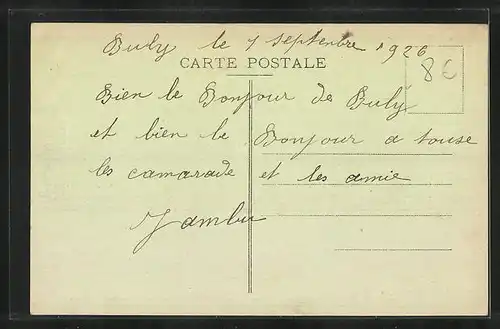 Buly le 7 septembre 1926
CARTE POSTALE
86
Bien le Bonjour de Buly
et bien le Bonjour a touse
les camarade et les amie
Jambu